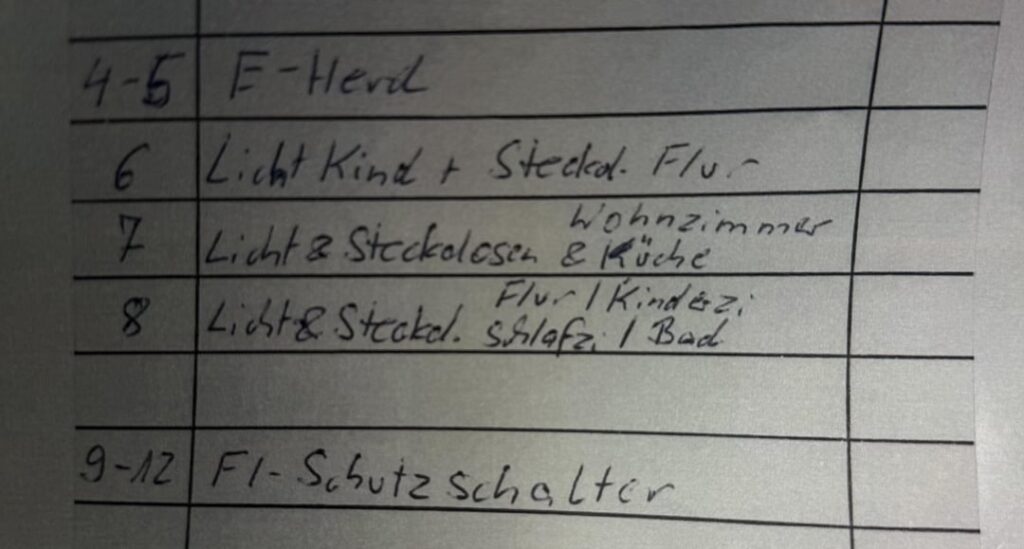 4-5 E-Herd
6 Licht Kind + Steckd. Flur
7 Licht & Steckdosen Wohnzimmer & Küche
8 Licht & Steckd. Flur / Kinderzi. Schlafzi. / Bad
9-12 FI-Schutzschalter